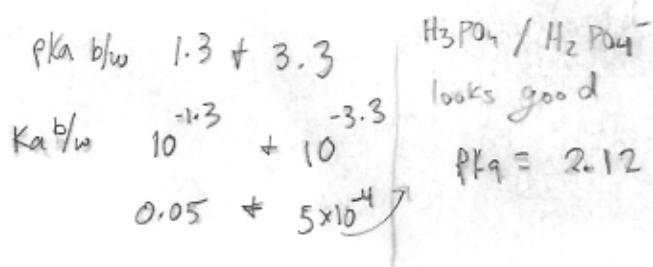 pKa b/w 1.3 + 3.3
Ka b/w 10^-1.3 + 10^-3.3
0.05 + 5x10^-4
H3PO4 / H2PO4^-
looks good
pKa = 2.12